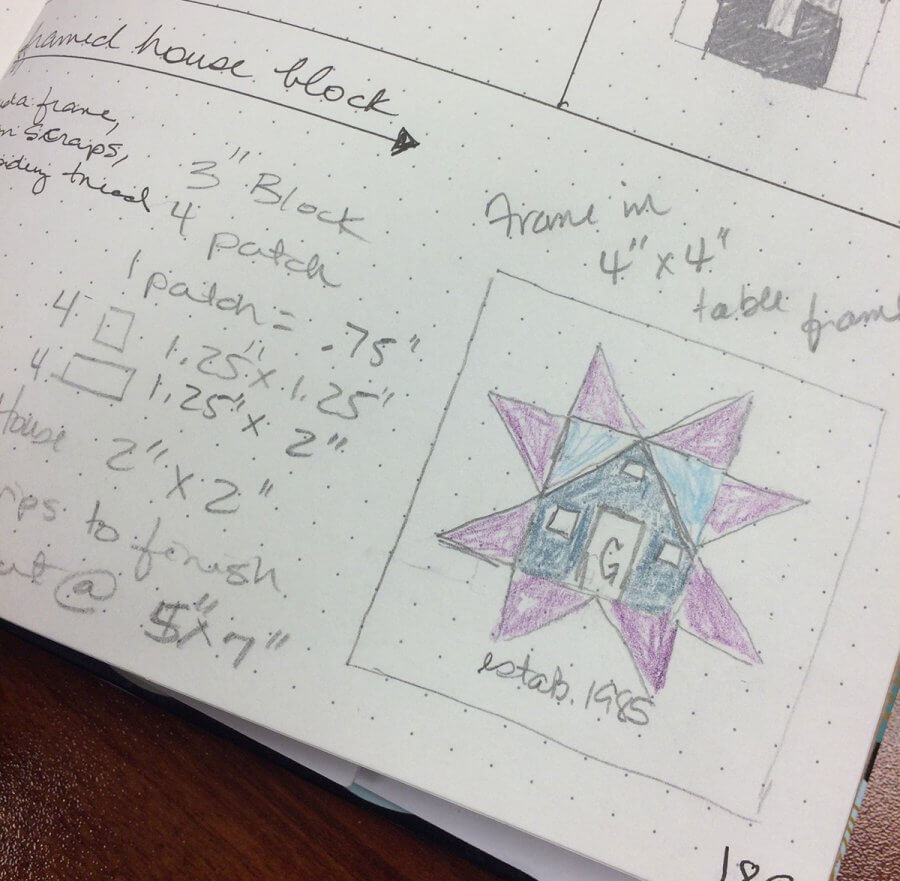 framed house block
frame,
scraps,
thread
3" Block
4 patch
1 patch = .75"
4 1.25" x 1.25"
4 1.25" x 2"
House 2" x 2"
to finish
@ 5" x 7"
Frame in
4" x 4"
table frame
G
estab. 1985